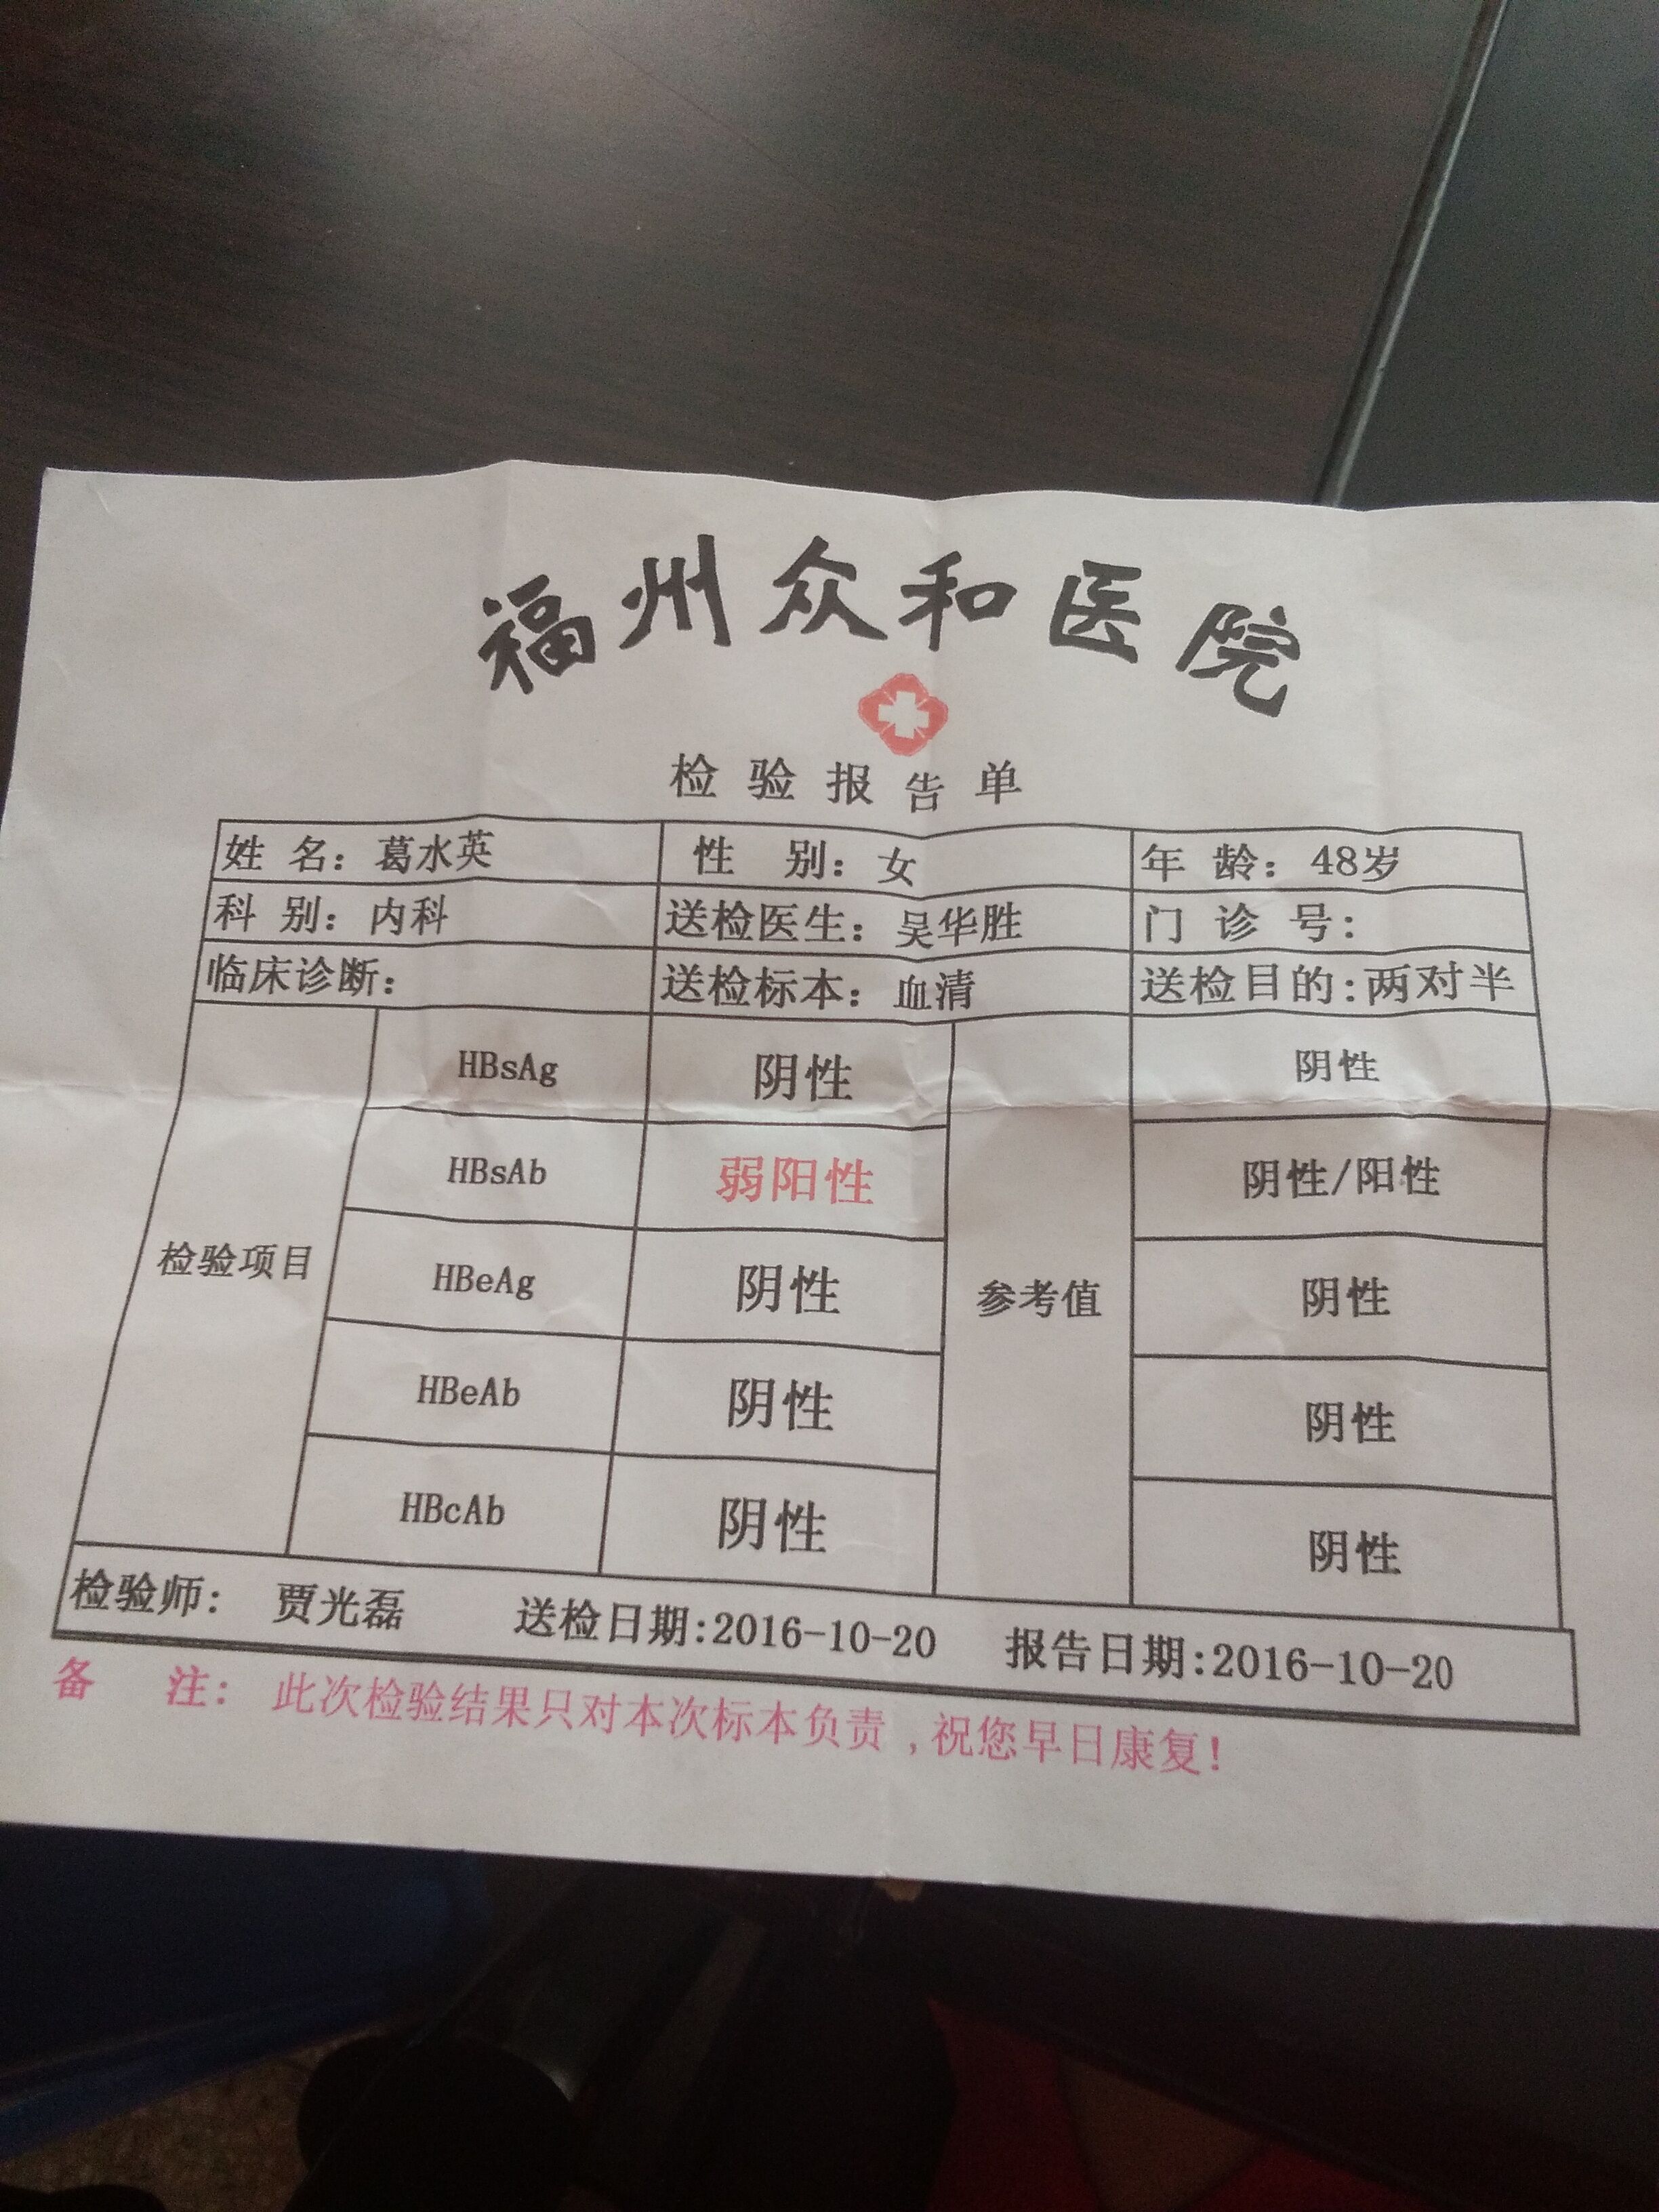 福州众和医院
检验报告单
姓 名：葛水英 性 别：女 年 龄：48岁
科 别：内科 送检医生：吴华胜 门 诊 号：
临床诊断： 送检标本：血清 送检目的：两对半
检验项目 参考值
HBsAg 阴性 阴性
HBsAb 弱阳性 阴性/阳性
HBeAg 阴性 阴性
HBeAb 阴性 阴性
HBcAb 阴性 阴性
检验师： 贾光磊 送检日期:2016-10-20 报告日期:2016-10-20
备 注： 此次检验结果只对本次标本负责,祝您早日康复!